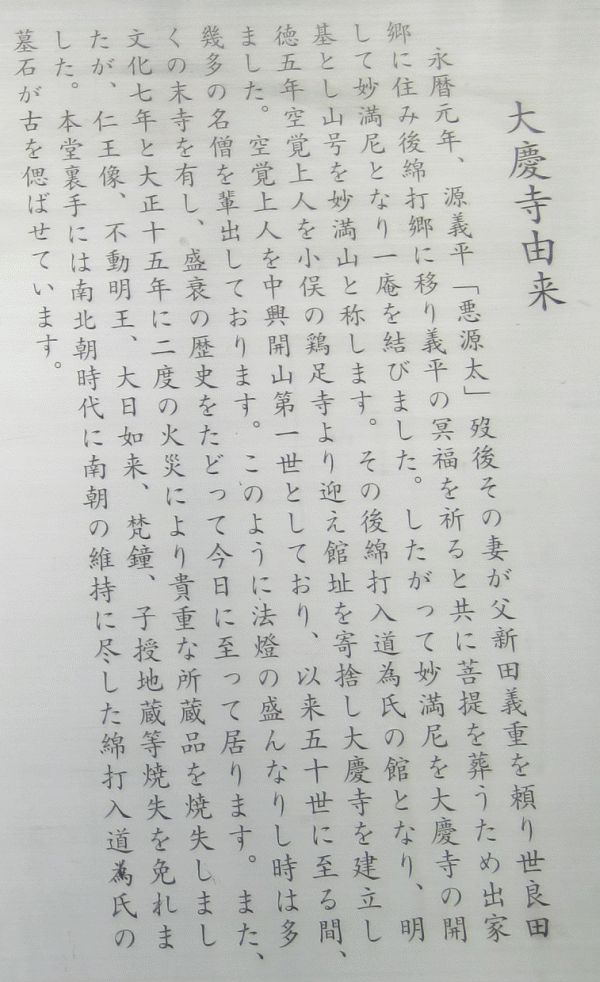 大慶寺由来
永暦元年、源義平「悪源太」歿後その妻が父新田義重を頼り世良田
郷に住み後綿打郷に移り義平の冥福を祈ると共に菩提を葬うため出家
して妙満尼となり一庵を結びました。したがって妙満尼を大慶寺の開
基とし山号を妙満山と称します。その後綿打入道為氏の館となり、明
徳五年空覚上人を小俣の鶏足寺より迎え館址を寄捨し大慶寺を建立し
ました。空覚上人を中興開山第一世としており、以来五十世に至る間、
幾多の名僧を輩出しております。このように法燈の盛んなりし時は多
くの末寺を有し、盛衰の歴史をたどって今日に至って居ります。また、
文化七年と大正十五年に二度の火災により貴重な所蔵品を焼失しまし
たが、仁王像、不動明王、大日如来、梵鐘、子授地蔵等焼失を免れま
した。本堂裏手には南北朝時代に南朝の維持に尽した綿打入道為氏の
墓石が古を偲ばせています。